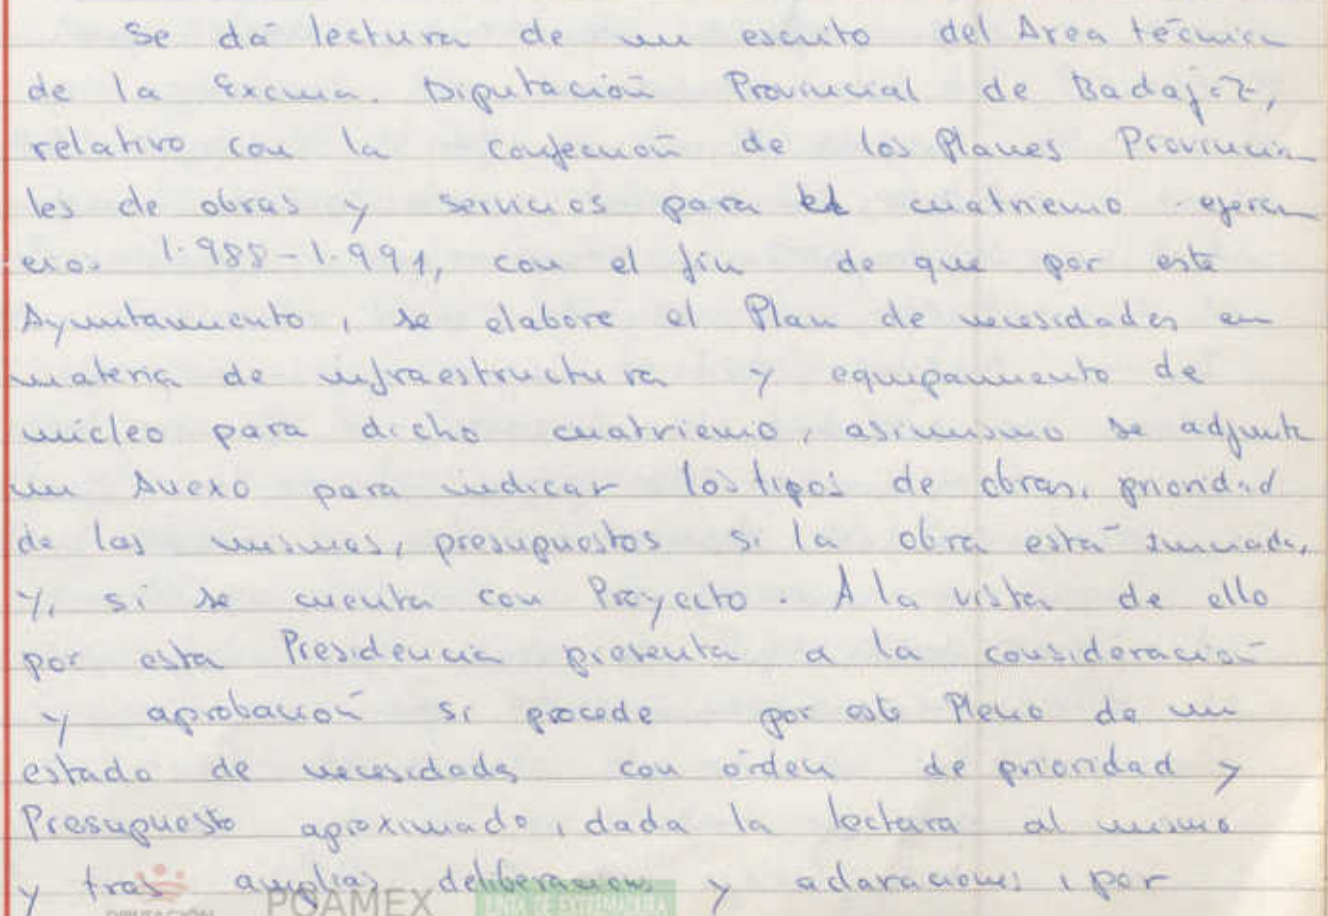 Se da lectura de un escrito del Area técnica
de la Excma. Diputación Provincial de Badajoz,
relativo con la confección de los Planes Provincia
les de obras y servicios para el cuatrienio ejerci
cios 1.988-1.991, con el fin de que por este
Ayuntamiento, se elabore el Plan de necesidades en
materia de infraestructura y equipamiento de
núcleo para dicho cuatrienio, asimismo se adjunta
un Anexo para indicar los tipos de obras, prioridad
de las mismas, presupuestos si la obra está iniciada,
y, si se cuenta con Proyecto. A la vista de ello
por esta Presidencia presenta a la consideración
y aprobación si procede por este Pleno de un
estado de necesidades con orden de prioridad y
Presupuesto aproximado, dada la lectura al mismo
y tras amplias deliberaciones y aclaraciones, por
DIPUTACIÓN POAMEX JUNTA DE EXTREMADURA